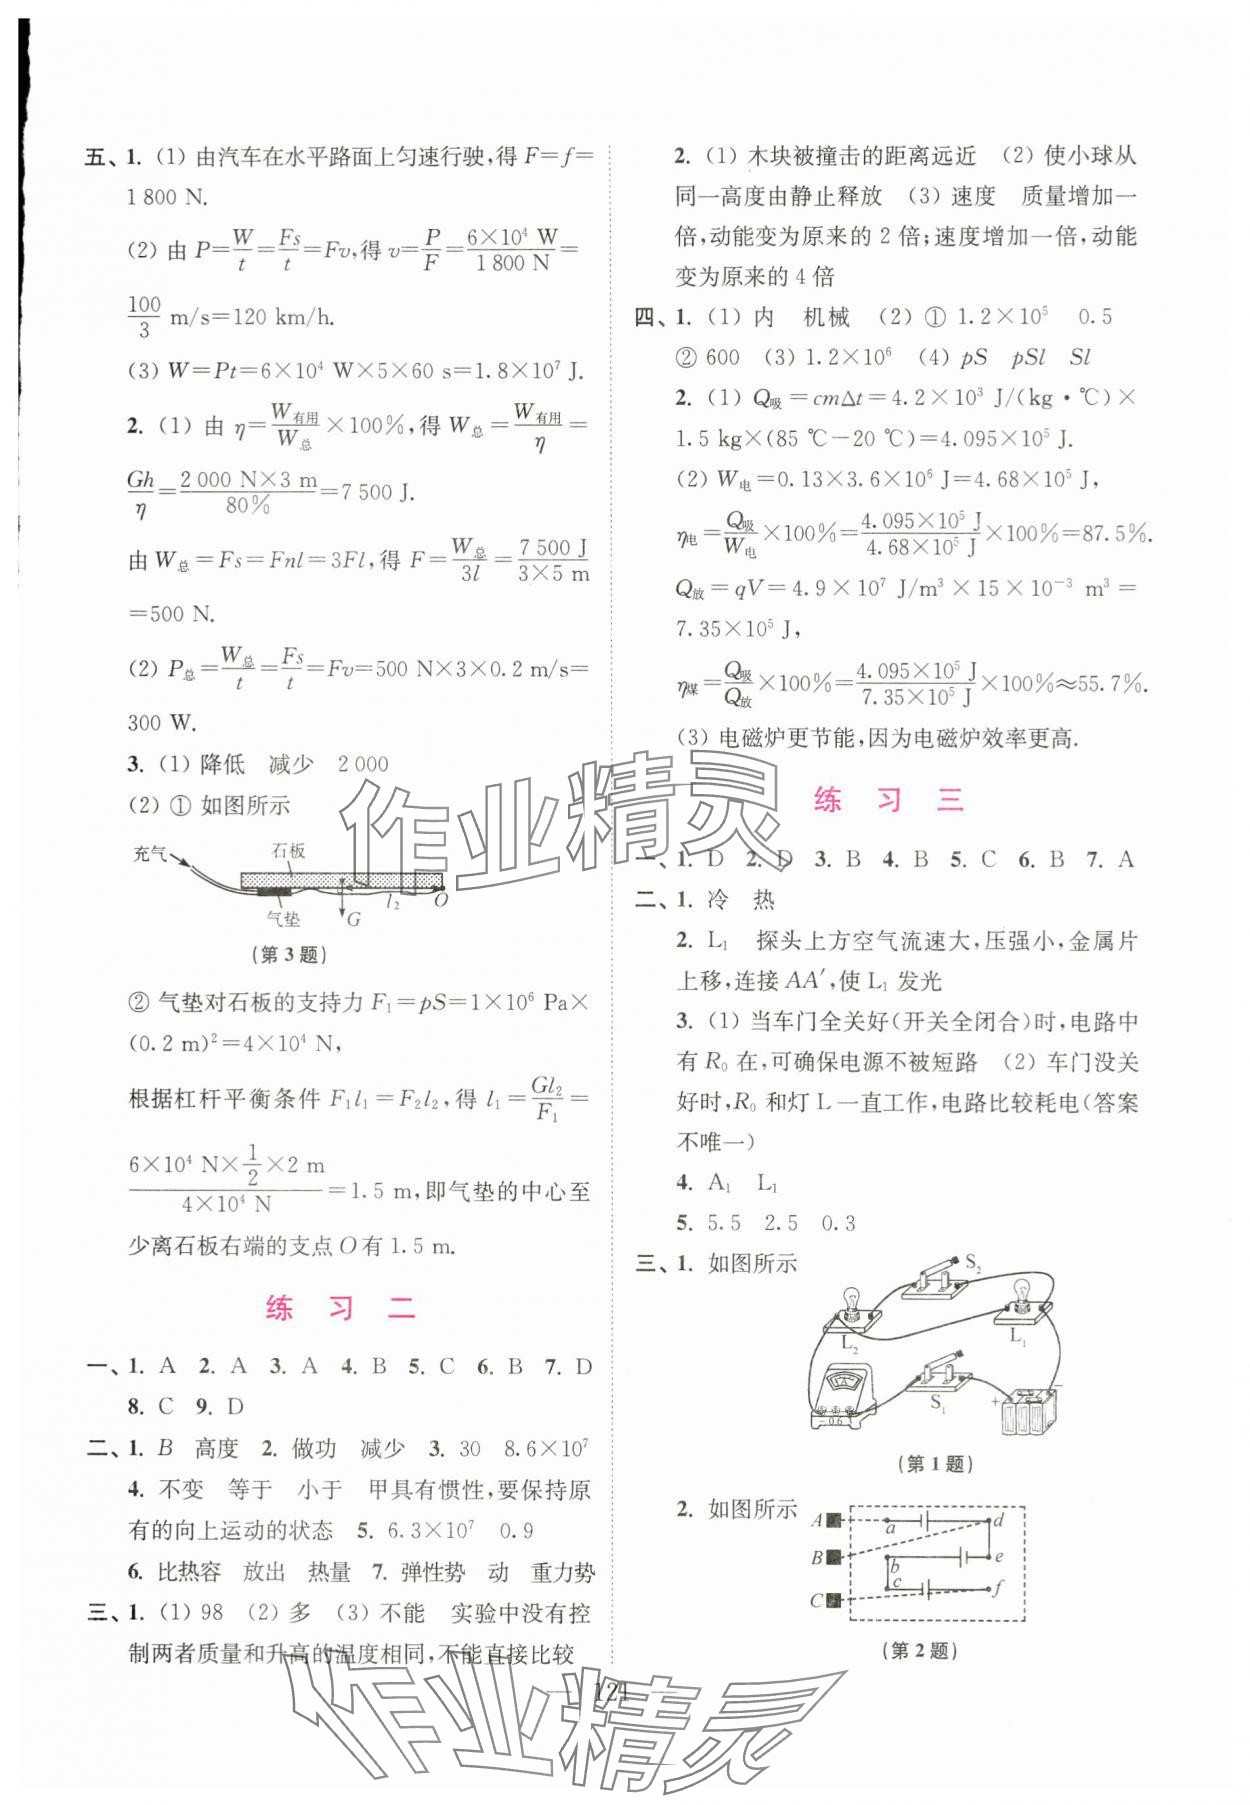 五、1. (1) 由汽车在水平路面上匀速行驶,得 F=f=
1 800 N.
(2) 由 P=W/t=Fs/t=Fv,得 v=P/F=6×10⁴ W/1 800 N=
100/3 m/s=120 km/h.
(3) W=Pt=6×10⁴ W×5×60 s=1.8×10⁷ J.
2. (1) 由 η=W有用/W总×100%,得 W总=W有用/η=
Gh/η=2 000 N×3 m/80%=7 500 J.
由 W总=Fs=Fnl=3Fl,得 F=W总/3l=7 500 J/3×5 m
=500 N.
(2) P总=W总/t=Fs/t=Fv=500 N×3×0.2 m/s=
300 W.
3. (1) 降低 减少 2 000
(2) ① 如图所示
充气 石板
气垫 G l₂ O
(第 3 题)
② 气垫对石板的支持力 F₁=pS=1×10⁶ Pa×
(0.2 m)²=4×10⁴ N,
根据杠杆平衡条件 F₁l₁=F₂l₂,得 l₁=Gl₂/F₁=
6×10⁴ N×1/2×2 m/4×10⁴ N=1.5 m,即气垫的中心至
少离石板右端的支点 O 有 1.5 m.
练 习 二
一、1. A 2. A 3. A 4. B 5. C 6. B 7. D
8. C 9. D
二、1. B 高度 2. 做功 减少 3. 30 8.6×10⁷
4. 不变 等于 小于 甲具有惯性,要保持原
有的向上运动的状态 5. 6.3×10⁷ 0.9
6. 比热容 放出 热量 7. 弹性势 动 重力势
三、1. (1) 98 (2) 多 (3) 不能 实验中没有控
制两者质量和升高的温度相同,不能直接比较
2. (1) 木块被撞击的距离远近 (2) 使小球从
同一高度由静止释放 (3) 速度 质量增加一
倍,动能变为原来的 2 倍;速度增加一倍,动能
变为原来的 4 倍
四、1. (1) 内 机械 (2) ① 1.2×10⁵ 0.5
② 600 (3) 1.2×10⁶ (4) pS pSl Sl
2. (1) Q吸=cmΔt=4.2×10³ J/(kg·℃)×
1.5 kg×(85 ℃-20 ℃)=4.095×10⁵ J.
(2) W电=0.13×3.6×10⁶ J=4.68×10⁵ J,
η电=Q吸/W电×100%=4.095×10⁵ J/4.68×10⁵ J×100%=87.5%.
Q放=qV=4.9×10⁷ J/m³×15×10⁻³ m³=
7.35×10⁵ J,
η煤=Q吸/Q放×100%=4.095×10⁵ J/7.35×10⁵ J×100%≈55.7%.
(3) 电磁炉更节能,因为电磁炉效率更高.
练 习 三
一、1. D 2. D 3. B 4. B 5. C 6. B 7. A
二、1. 冷 热
2. L₁ 探头上方空气流速大,压强小,金属片
上移,连接 AA′,使 L₁ 发光
3. (1) 当车门全关好(开关全闭合)时,电路中
有 R₀ 在,可确保电源不被短路 (2) 车门没关
好时,R₀ 和灯 L 一直工作,电路比较耗电(答案
不唯一)
4. A₁ L₁
5. 5.5 2.5 0.3
三、1. 如图所示
S₂
L₂ L₁
A
S₁ + −
− 0.6 3
(第 1 题)
2. 如图所示
A a d
B b e
C c f
(第 2 题)
121
作业精灵
作业精灵